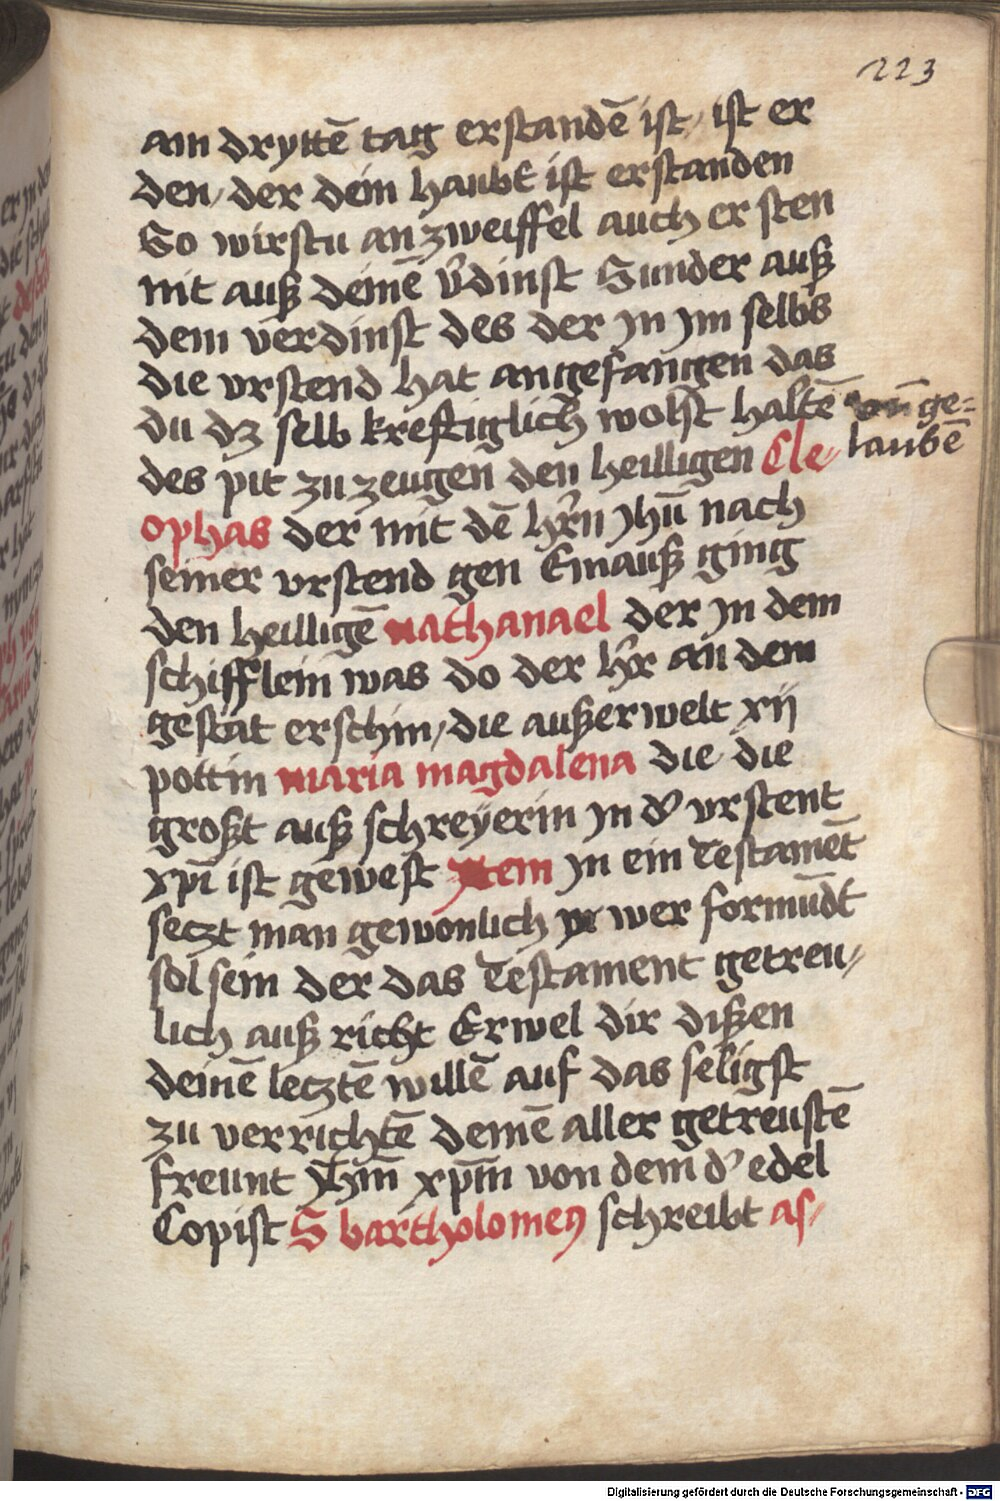 223
am dryttē tag erstandē ist, ist er
den, der dem haubt ist erstanden
So wirstu an zweiffel auch ersten
nit auß deinē v̾dinst Sunder auß
dem verdinst des der jn jm selbs
die vrstend hat angefangen das
du dz selb kreftiglich wolst haltē vn̄ ge-
laubē
des pit zu zeugen den heilligen Cle-
ophas der mit dē hr̄n jhū nach
seiner vrstend gen Emauß ging
den heilligē nathanael der jn dem
schifflein was do der hr̄ an dem
gestat erschin, die außerwelt xij
pottin maria magdalena die die
großt auß schreyerin jn d' vrstent
xp̄i ist gewest Item jn ein Testamēt
seczt man gewonlich wer formūdt
sol sein der das Testament getreu-
lich auß richt Erwel dir dißen
deinē lecztē willē auf das seligst
zu verrichtē deinē aller getreustē
freunt jhm̄ xp̄m von dem d' edel
Copist S bartholomeꝰ schreibt as-
Digitalisierung gefördert durch die Deutsche Forschungsgemeinschaft - DFG